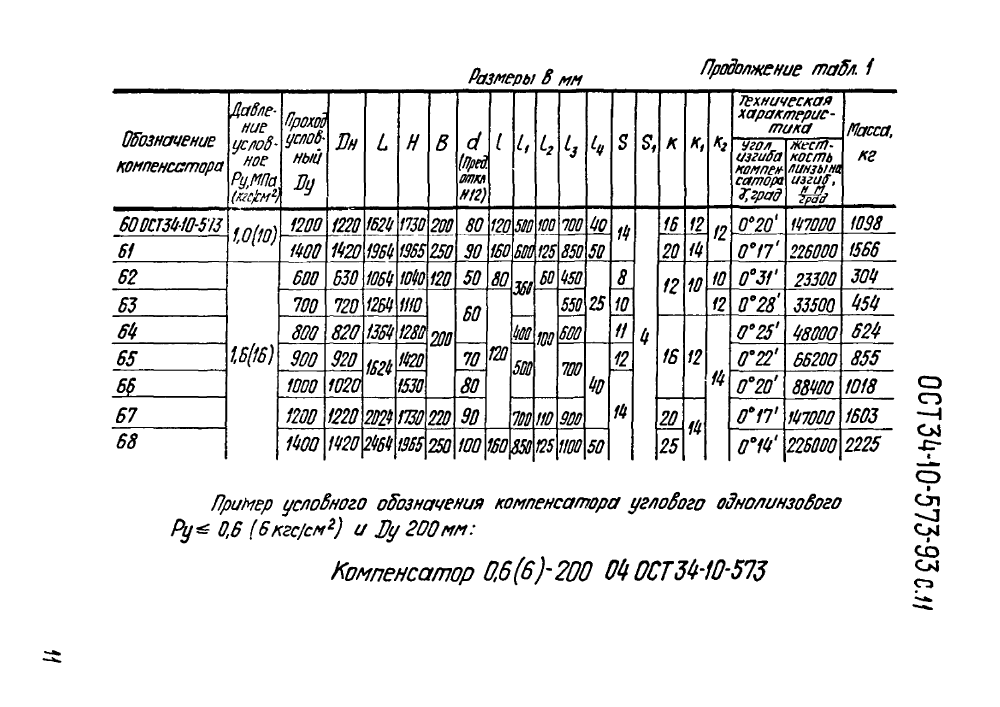 Продолжение табл. 1
Размеры в мм
Обозначение компенсатора | Давле-ние услов-ное Ру, МПа (кгс/см²) | Проход услов-ный Ду | Dн | L | H | B | d (Пред. откл Н12) | l | l₁ | l₂ | l₃ | l₄ | S | S₁ | к | к₁ | к₂ | Техническая характерис-тика | Масса, кг
угол изгиба компен-сатора γ, град | жест-кость линзы на изгиб, Н·М/град
60 ОСТ34-10-573 | 1,0(10) | 1200 | 1220 | 1624 | 1730 | 200 | 80 | 120 | 500 | 100 | 700 | 40 | 14 | 4 | 16 | 12 | 12 | 0°20' | 147000 | 1098
61 | 1400 | 1420 | 1964 | 1965 | 250 | 90 | 160 | 600 | 125 | 850 | 50 | 20 | 14 | 0°17' | 226000 | 1566
62 | 1,6(16) | 600 | 630 | 1064 | 1040 | 120 | 50 | 80 | 360 | 60 | 450 | 25 | 8 | 12 | 10 | 10 | 0°31' | 23300 | 304
63 | 700 | 720 | 1264 | 1110 | 200 | 60 | 120 | 100 | 550 | 10 | 12 | 0°28' | 33500 | 454
64 | 800 | 820 | 1364 | 1280 | 400 | 600 | 40 | 11 | 16 | 12 | 14 | 0°25' | 48000 | 624
65 | 900 | 920 | 1624 | 1420 | 70 | 500 | 700 | 12 | 0°22' | 66200 | 855
66 | 1000 | 1020 | 1530 | 80 | 14 | 0°20' | 88400 | 1018
67 | 1200 | 1220 | 2024 | 1730 | 220 | 90 | 700 | 110 | 900 | 20 | 14 | 0°17' | 147000 | 1603
68 | 1400 | 1420 | 2464 | 1965 | 250 | 100 | 160 | 850 | 125 | 1100 | 50 | 25 | 0°14' | 226000 | 2225
Пример условного обозначения компенсатора углового однолинзового
Ру ≤ 0,6 (6 кгс/см²) и Ду 200 мм:
Компенсатор 0,6(6)-200 04 ОСТ 34-10-573
ОСТ34-10-573-93 с.11
11